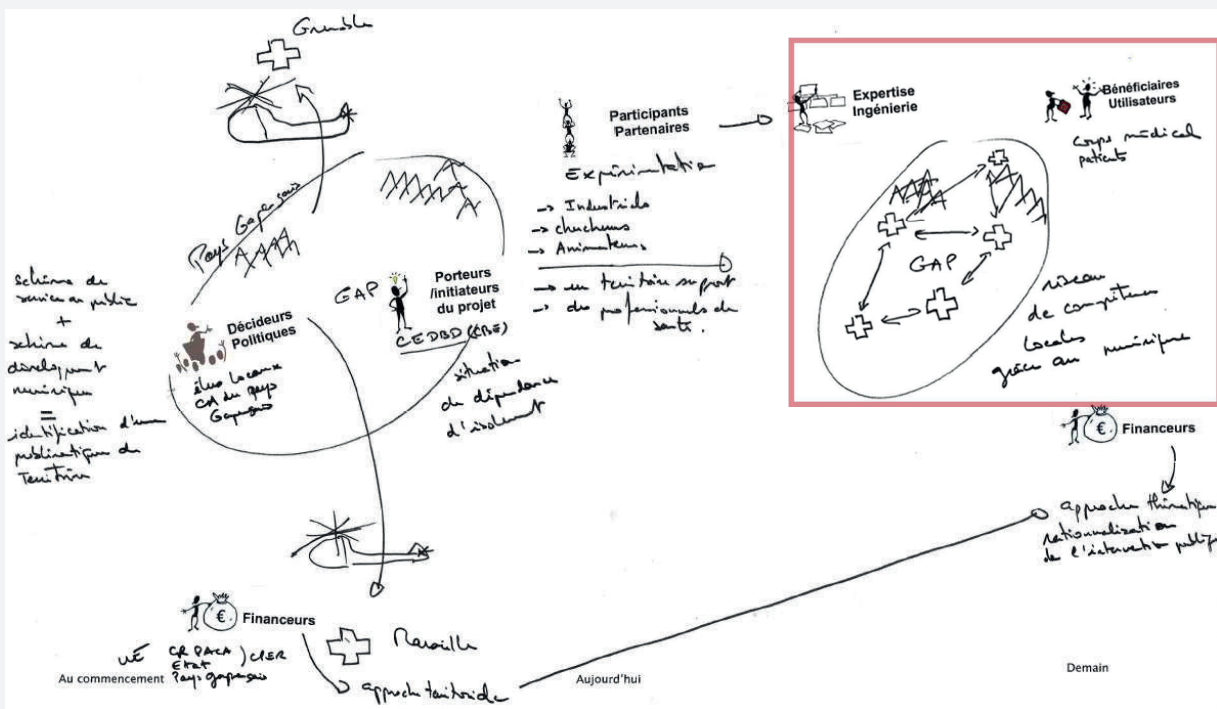 Grenoble
Pays Gapençais
schéma de
services publics
+
schéma de
développement
numérique
=
identification d'une
problématique du
Territoire
Décideurs
Politiques
élus locaux
CA du pays
Gapençais
GAP
Porteurs
/initiateurs
du projet
CEDBD (CBE)
situation
de dépendance
d'isolement
Participants
Partenaires
Expérimentation
→ Industriels
→ chercheurs
→ Animateurs
→ un territoire support
→ des professionnels de
santé.
Expertise
Ingénierie
Bénéficiaires
Utilisateurs
corps médical
patients
GAP
réseau
de compétences
locales
grâce au numérique
€ Financeurs
approche thématique
rationnalisation
de l'intervention publique
€ Financeurs
UE CR PACA ) CPER
Etat
Pays gapençais
Marseille
approche territoriale
Au commencement
Aujourd'hui
Demain